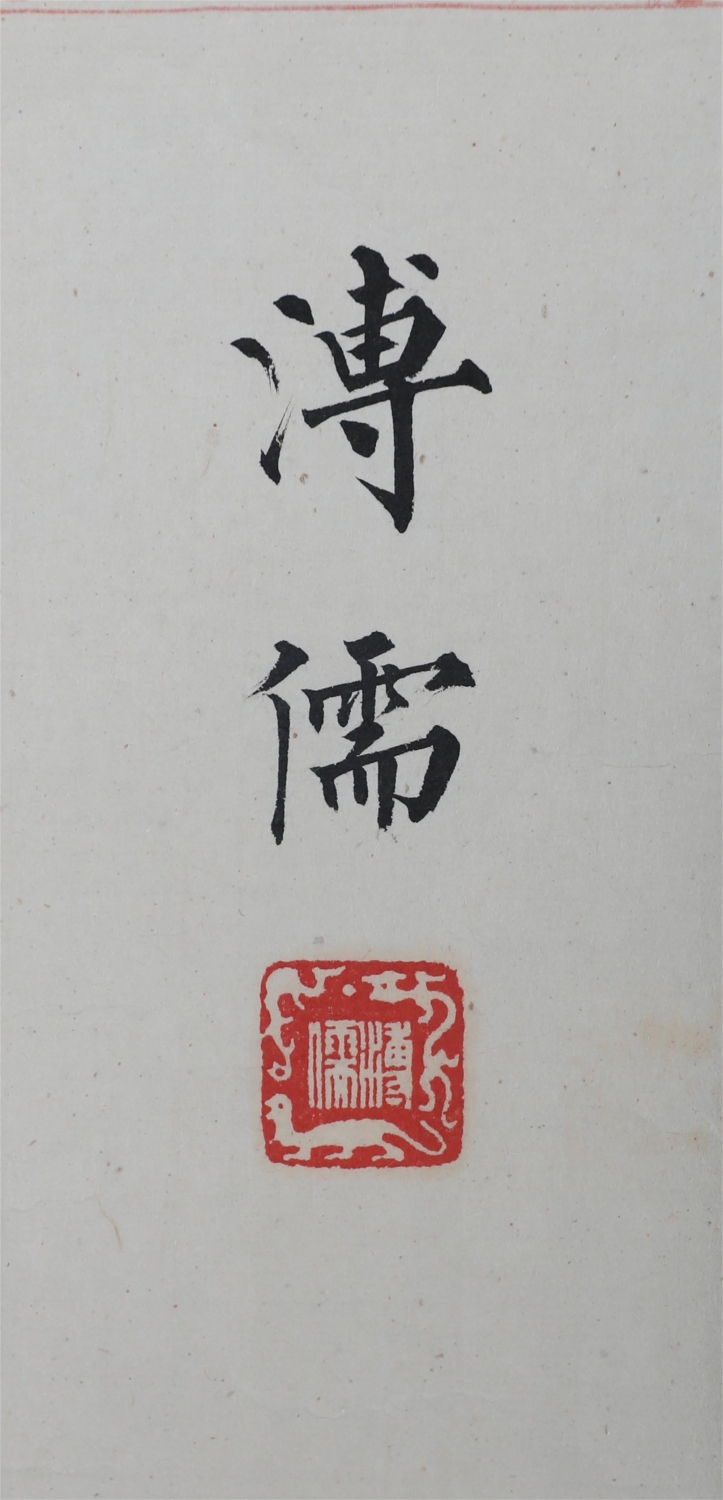 溥儒
溥儒